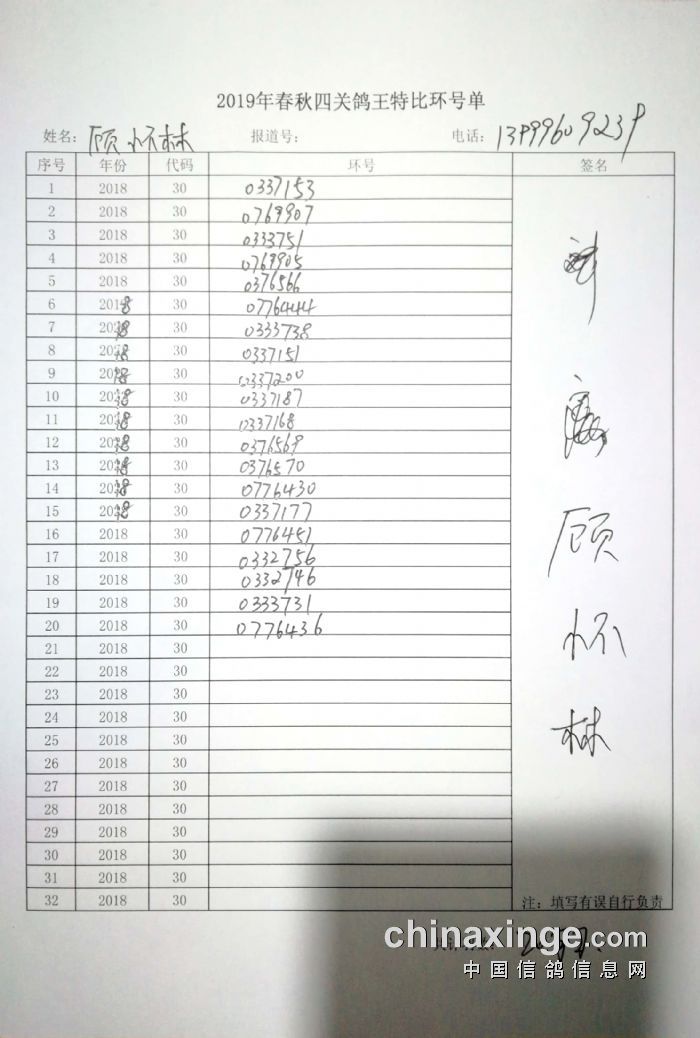 2019年春秋四关鸽王特比环号单
姓名: 顾怀林 报道号: 电话: 13999609239
序号 年份 代码 环号 签名
1 2018 30 0337153
2 2018 30 0769907
3 2018 30 0333751
4 2018 30 0769905
5 2018 30 0376566
6 2018 30 0776444
7 2018 30 0333738
8 2018 30 0337151
9 2018 30 0337200
10 2018 30 0337187
11 2018 30 0337168
12 2018 30 0376569
13 2018 30 0376570
14 2018 30 0776430
15 2018 30 0337177
16 2018 30 0776451
17 2018 30 0332756
18 2018 30 0332746
19 2018 30 0333731
20 2018 30 0776436
21 2018 30
22 2018 30
23 2018 30
24 2018 30
25 2018 30
26 2018 30
27 2018 30
28 2018 30
29 2018 30
30 2018 30
31 2018 30
32 2018 30
顾
怀
林
注: 填写有误自行负责
chinaxinge.com
中国信鸽信息网